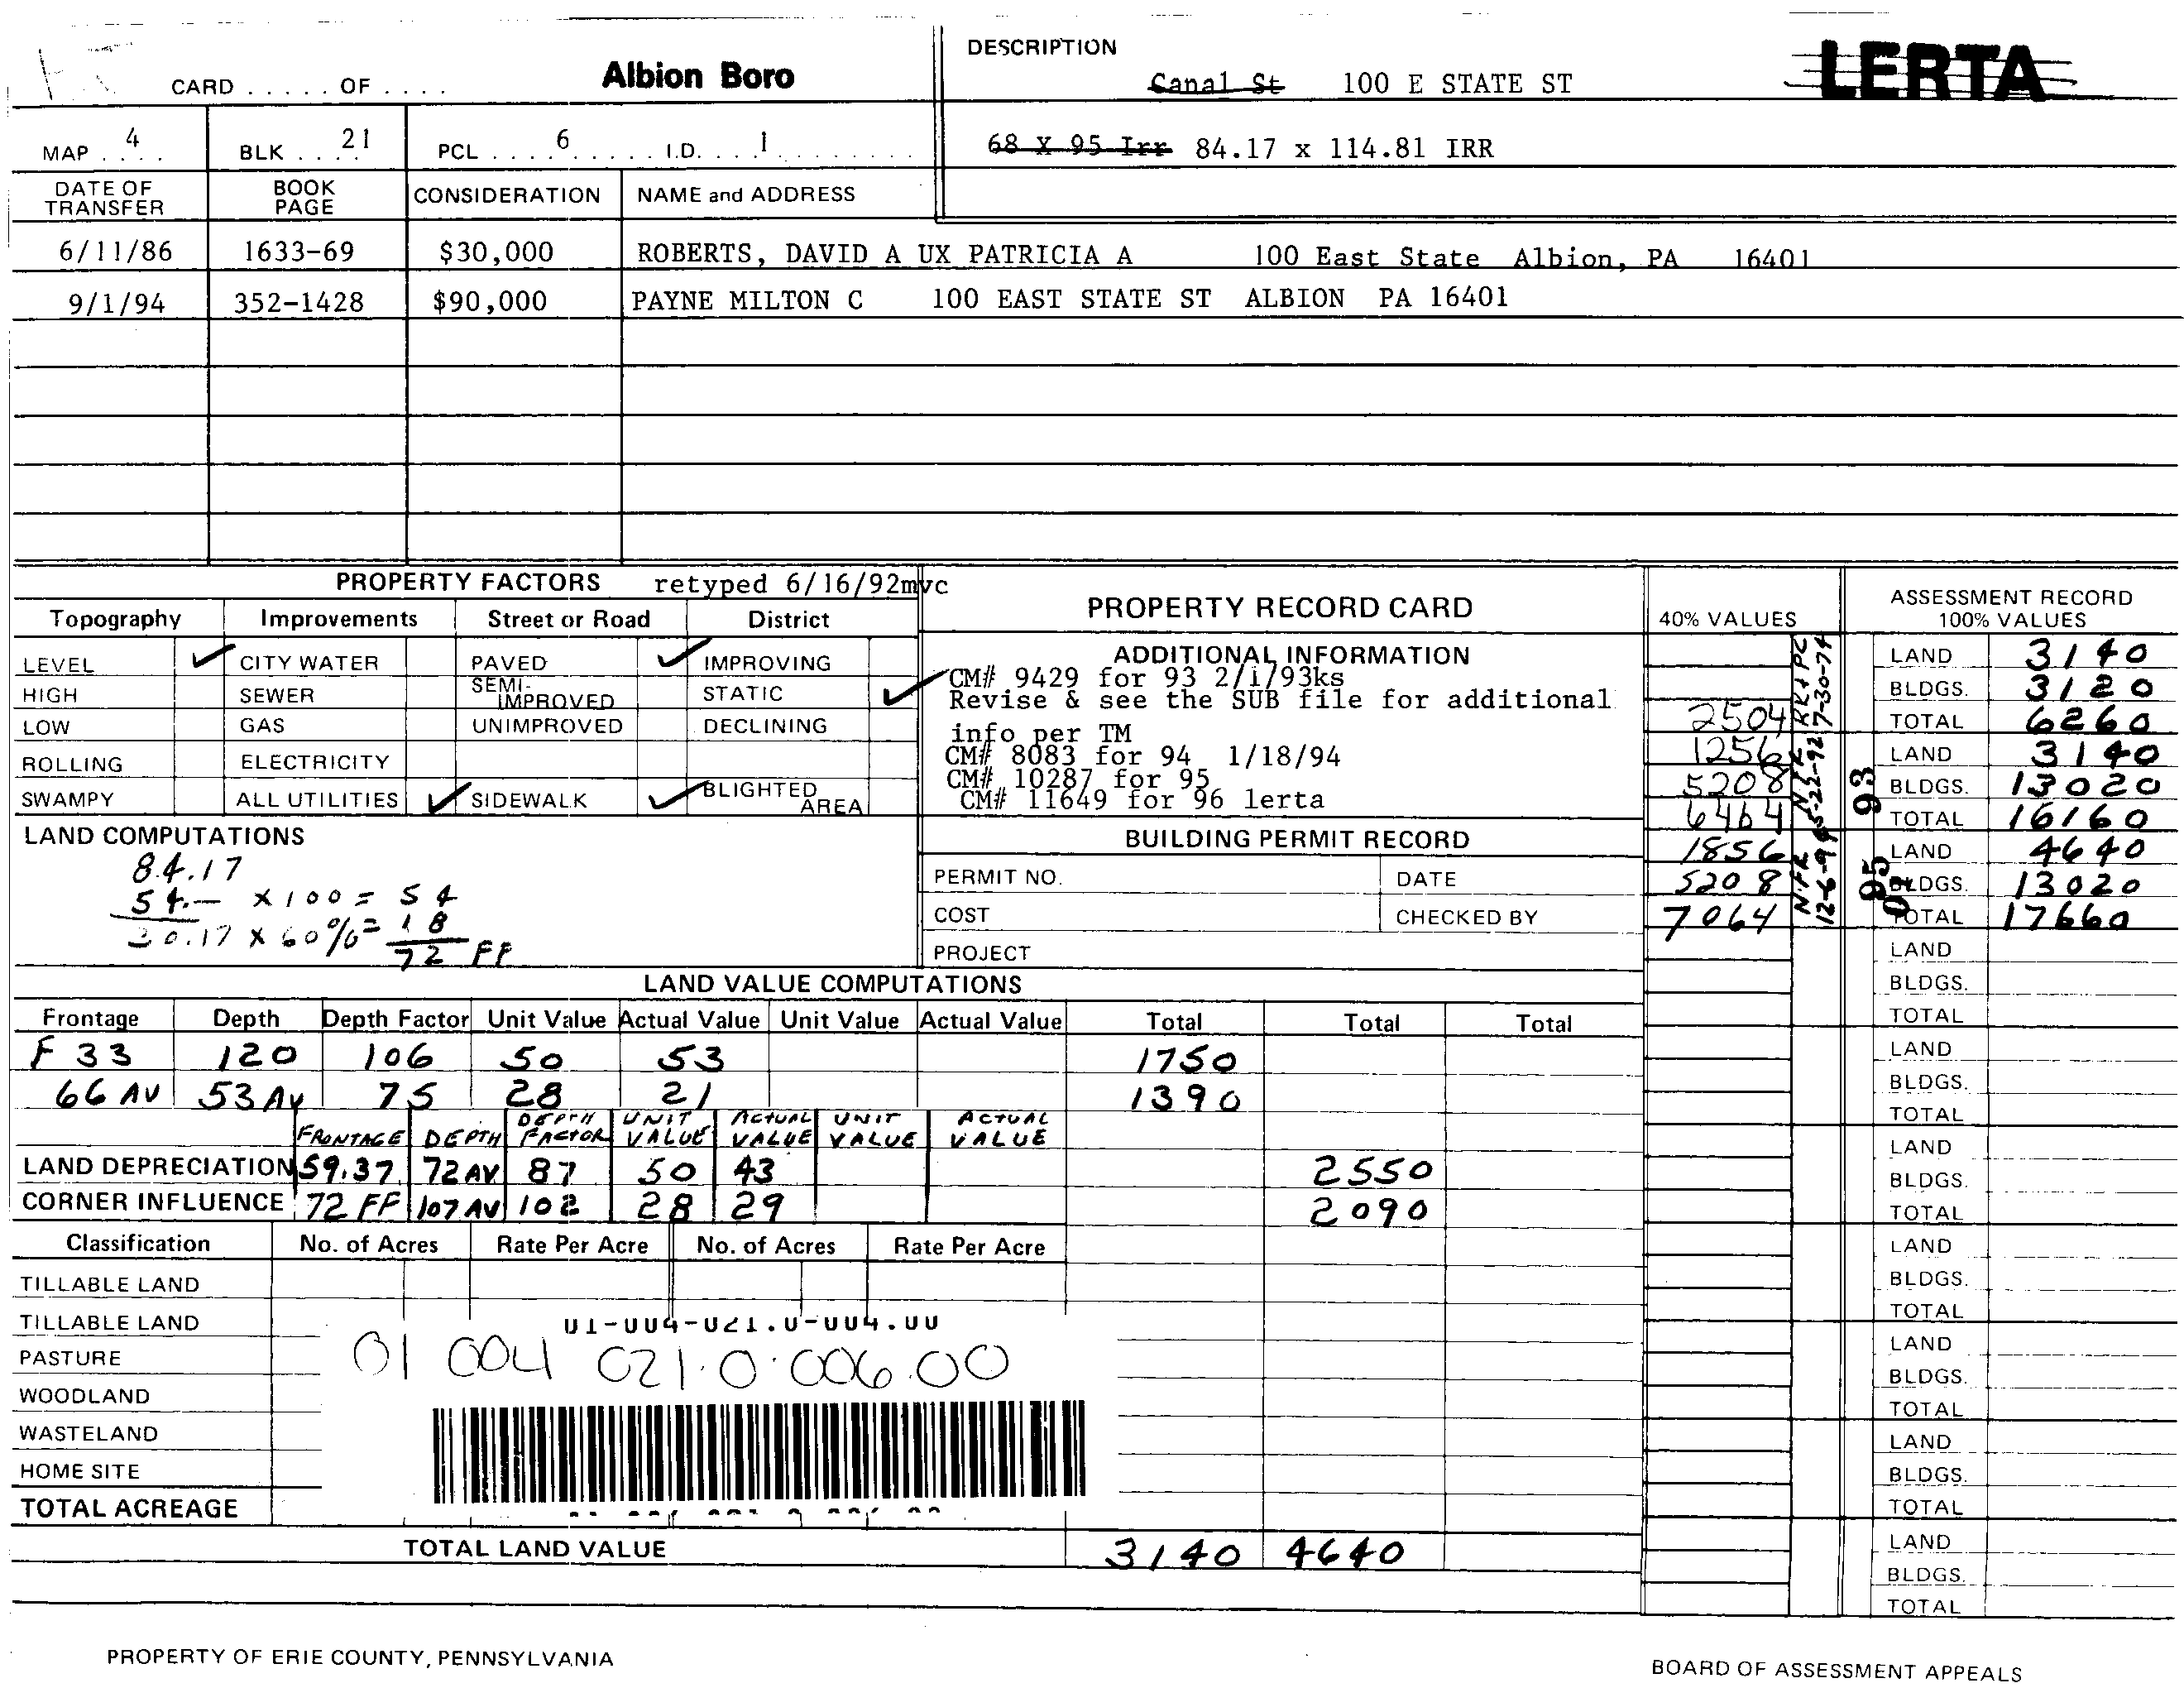 CARD . . . . . OF . . . .
Albion Boro
DESCRIPTION
Canal St 100 E STATE ST
LERTA
MAP . 4 . . .
BLK . . 21 . .
PCL . . . . 6 . . . . . I.D. . . . 1 . . . . . . . . .
68 X 95 Irr 84.17 x 114.81 IRR
DATE OF TRANSFER
BOOK PAGE
CONSIDERATION
NAME and ADDRESS
6/11/86 1633-69 $30,000 ROBERTS, DAVID A UX PATRICIA A 100 East State Albion, PA 16401
9/1/94 352-1428 $90,000 PAYNE MILTON C 100 EAST STATE ST ALBION PA 16401
PROPERTY FACTORS retyped 6/16/92mvc
Topography Improvements Street or Road District
LEVEL ✓ CITY WATER PAVED ✓ IMPROVING
HIGH SEWER SEMI-IMPROVED STATIC ✓
LOW GAS UNIMPROVED DECLINING
ROLLING ELECTRICITY
SWAMPY ALL UTILITIES ✓ SIDEWALK ✓ BLIGHTED AREA
PROPERTY RECORD CARD
ADDITIONAL INFORMATION
CM# 9429 for 93 2/1/93ks
Revise & see the SUB file for additional
info per TM
CM# 8083 for 94 1/18/94
CM# 10287 for 95
CM# 11649 for 96 lerta
BUILDING PERMIT RECORD
PERMIT NO. DATE
COST CHECKED BY
PROJECT
40% VALUES
2504
1256
5208
6464
1856
5208
7064
7-30-74
5-22-92
NFR
12-6-94
ASSESSMENT RECORD
100% VALUES
LAND 3140
BLDGS. 3120
TOTAL 6260
93
LAND 3140
BLDGS. 13020
TOTAL 16160
95
LAND 4640
BLDGS. 13020
TOTAL 17660
LAND
BLDGS.
TOTAL
LAND
BLDGS.
TOTAL
LAND
BLDGS.
TOTAL
LAND
BLDGS.
TOTAL
LAND
BLDGS.
TOTAL
LAND
BLDGS.
TOTAL
LAND
BLDGS.
TOTAL
LAND COMPUTATIONS
84.17
54.— X 100 = 54
30.17 X 60% = 18
72 FF
LAND VALUE COMPUTATIONS
Frontage Depth Depth Factor Unit Value Actual Value Unit Value Actual Value Total Total Total
F 33 120 106 50 53 1750
66 AV 53 AV 75 28 21 1390
FRONTAGE DEPTH DEPTH FACTOR UNIT VALUE ACTUAL VALUE UNIT VALUE ACTUAL VALUE
LAND DEPRECIATION 59.37 72 AV 87 50 43 2550
CORNER INFLUENCE 72 FF 107 AV 102 28 29 2090
Classification No. of Acres Rate Per Acre No. of Acres Rate Per Acre
TILLABLE LAND
TILLABLE LAND
01-004-021.0-004.00
PASTURE
01 004 021.0.006.00
WOODLAND
WASTELAND
HOME SITE
TOTAL ACREAGE
TOTAL LAND VALUE 3140 4640
PROPERTY OF ERIE COUNTY, PENNSYLVANIA
BOARD OF ASSESSMENT APPEALS